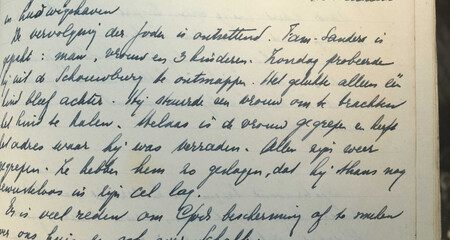 in Ludwigshaven
De vervolging der Joden is ontzettend. Fam. Sanders is
gepakt: man, vrouw en 3 kinderen. Zondag probeerde
hij uit de Schouwburg te ontsnappen. Het gelukte alleen één
kind bleef achter. Hij stuurde een vrouw om te trachten
het kind te halen. Helaas is de vrouw gegrepen en heeft
het adres waar hij was verraden. Allen zijn weer
gegrepen. Ze hebben hem zo geslagen, dat hij thans nog
bewusteloos in zijn cel lag.
Er is veel reden om Gods bescherming af te smeken
over ons huis en ook over